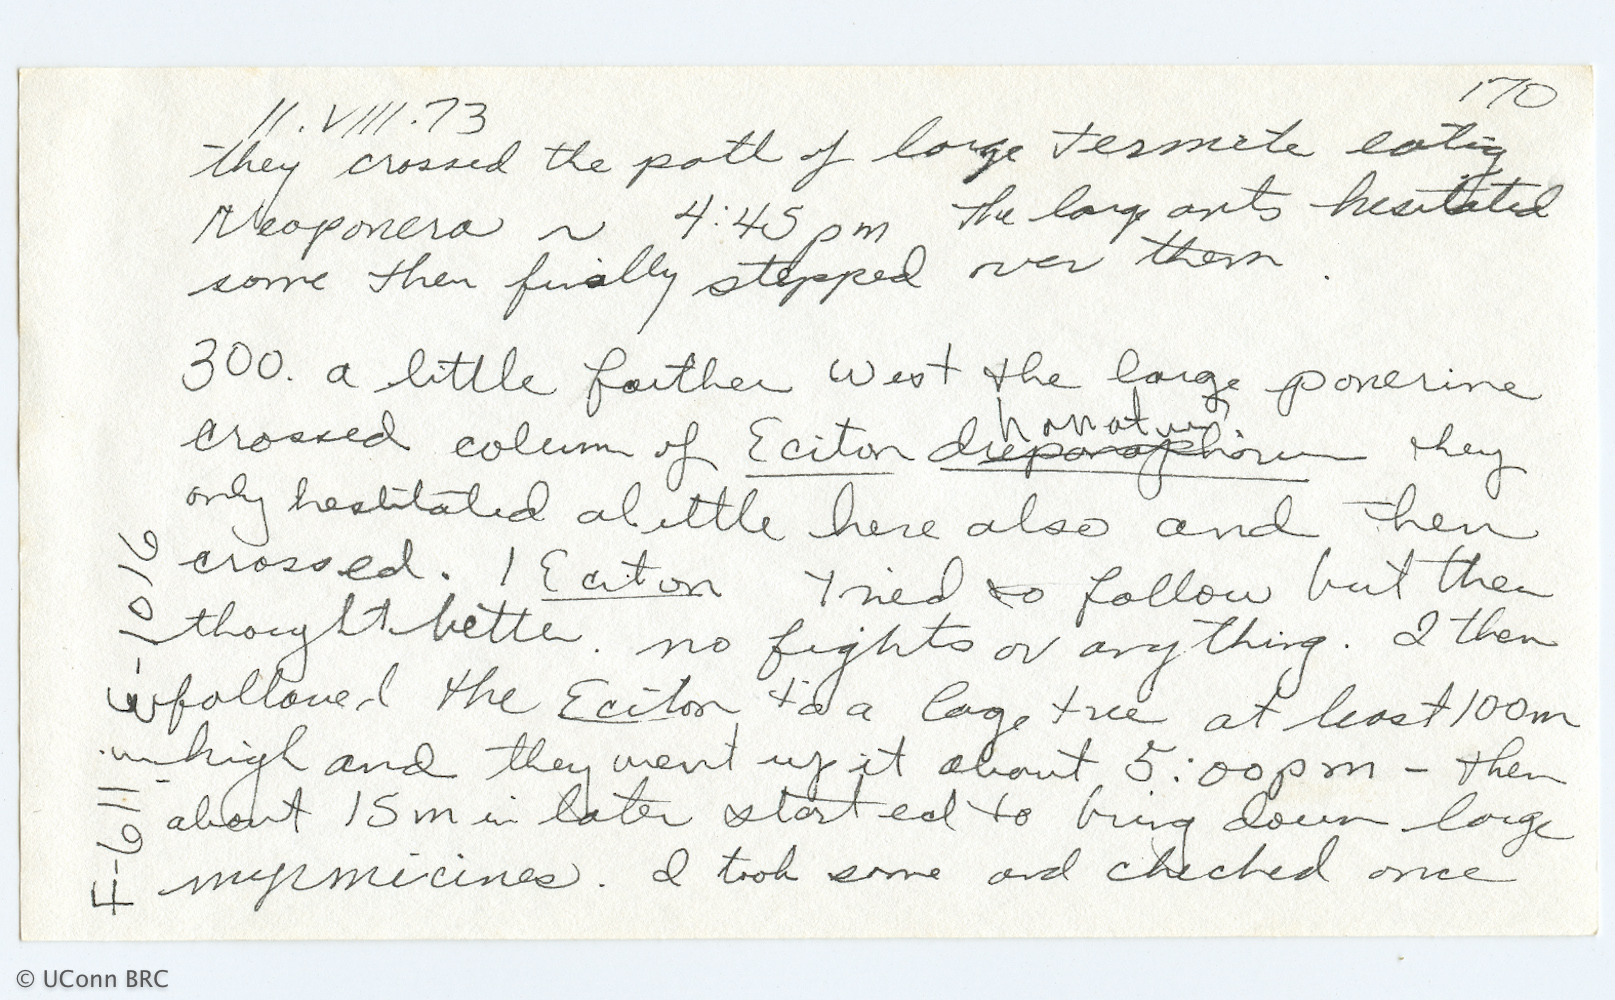 170
11.VIII.73
they crossed the path of large termite eating
Neoponera ~ 4:45 pm The large ants hesitated
some then finally stepped over them.
300. a little farther west the large ponerine
crossed column of Eciton drepanophorum hamatum they
only hestitated alittle here also and then
crossed. 1 Eciton tried to follow but then
thought better. no fights or anything. I then
followed the Eciton to a large tree at least 100m
high and they went up it about 5:00pm - then
about 15 min later started to bring down large
myrmicines. I took some and checked once
© UConn BRC